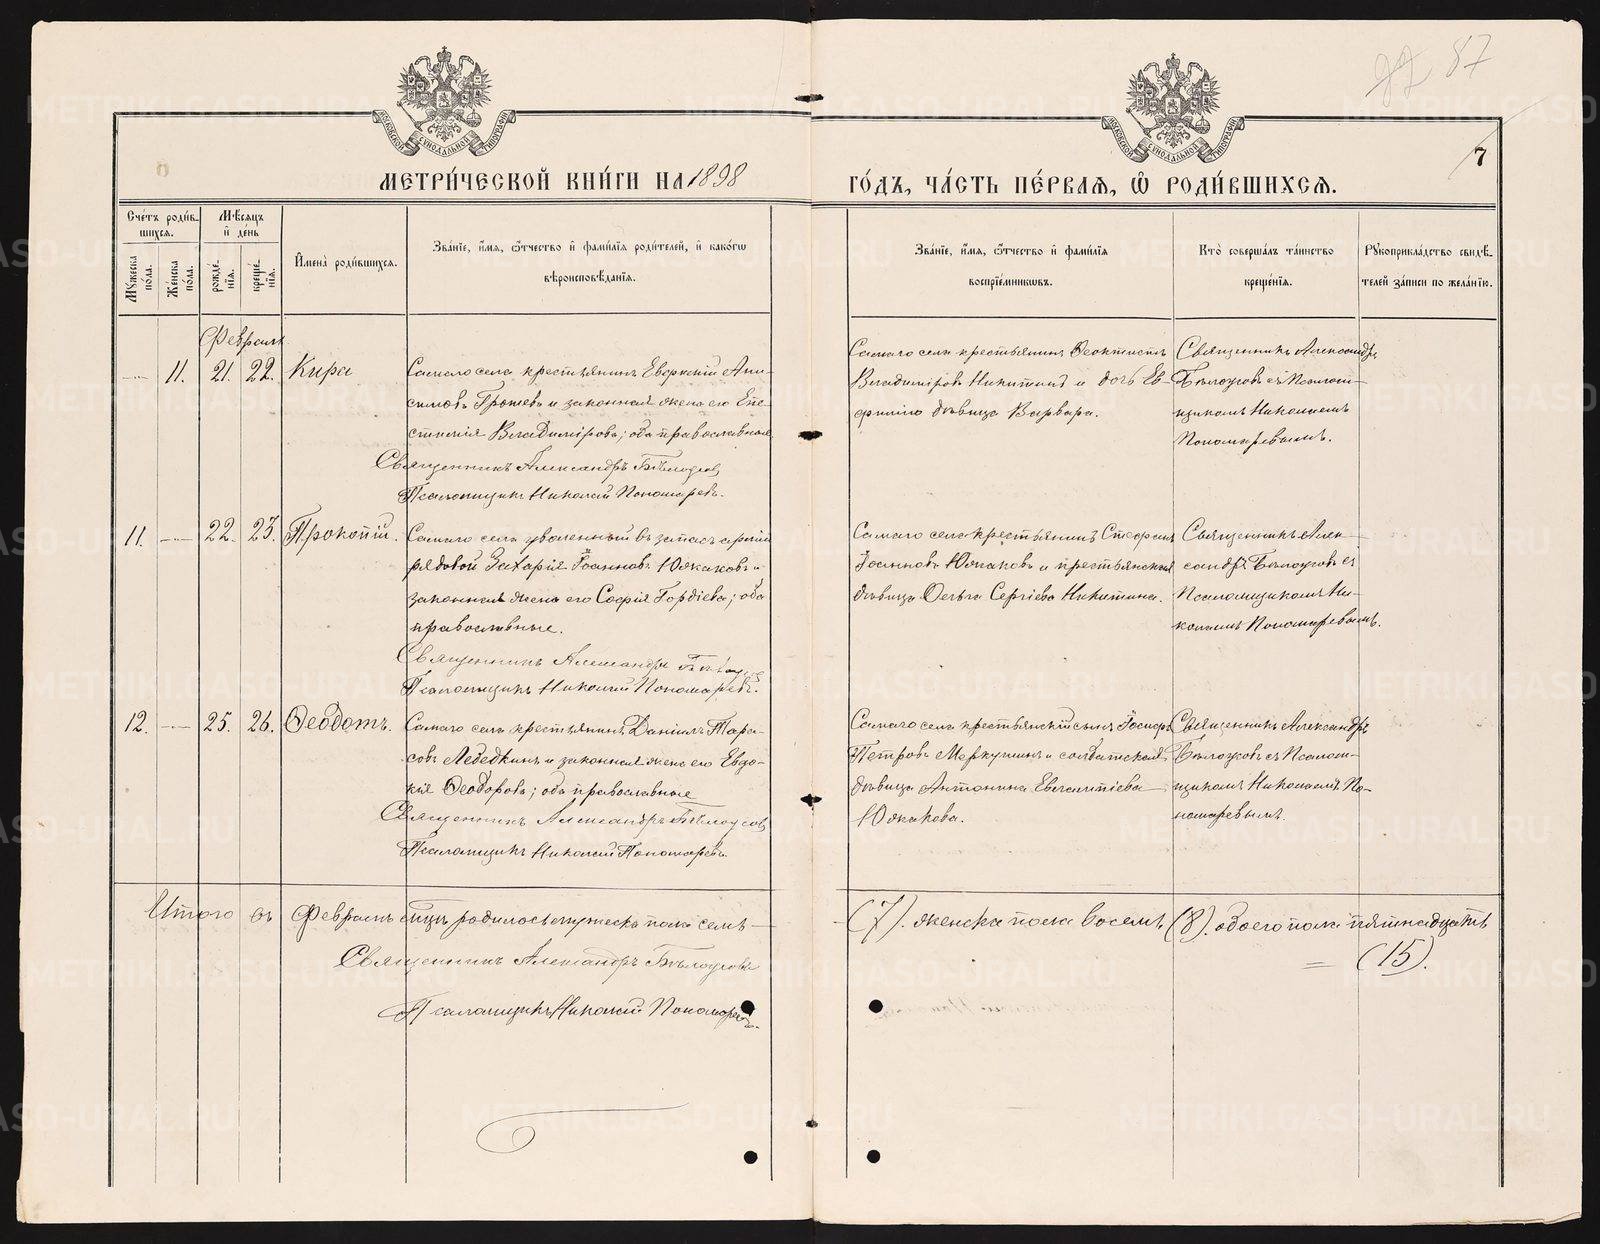 87
МОСКОВСКОЙ СѴНОДАЛЬНОЙ ТИПОГРАФІИ
МОСКОВСКОЙ СѴНОДАЛЬНОЙ ТИПОГРАФІИ
7
МЕТРИ́ЧЕСКОЙ КНИ́ГИ НА 1898
ГО́ДЪ, ЧА́СТЬ ПЕ́РВАѦ, Ѽ РОДИ́ВШИХСѦ.
Сче́тъ роди́вшихсѧ.
Мꙋжеска по́ла.
Же́нска по́ла.
Мѣ́сѧцъ и҆ де́нь
рожде́нїѧ.
креще́нїѧ.
И҆мена̀ роди́вшихсѧ.
Зва́нїе, и҆́мѧ, ѻ҆́тчество и҆ фами́лїѧ роди́телей, и҆ како́гѡ
вѣроисповѣ́данїѧ.
Зва́нїе, и҆́мѧ, ѻ҆́тчество и҆ фами́лїѧ
воспрїе́мникѡвъ.
Кто̀ соверша́лъ та́инство
креще́нїѧ.
Рꙋкоприкла́дство свидѣ́-
телей за́писи по жела́нїю.
Февраль
11. 21. 22. Кира
Самаго села крестьянинъ Евгений Ани-
симовъ Грошевъ и законная жена его Епи-
стимія Владимірова; оба православные
Священникъ Александръ Бѣлоусовъ
Псаломщикъ Николай Пономаревъ.
Самаго села крестьянинъ Феоктистъ
Владиміровъ Никитинъ и дочь Ев-
фиміи дѣвица Варвара.
Священникъ Александръ
Бѣлоусовъ съ Псалом-
щикомъ Николаемъ
Пономаревымъ.
11. 22. 23. Прокопій.
Самаго села уволенный въ запасъ арміи
рядовой Захарія Іоанновъ Южаковъ и
законная жена его Софія Гордіева; оба
православные.
Священникъ Александръ Бѣлоусовъ
Псаломщикъ Николай Пономаревъ.
Самаго села крестьянинъ Стефанъ
Іоанновъ Южаковъ и крестьянская
дѣвица Ольга Сергіева Никитина.
Священникъ Алек-
сандръ Бѣлоусовъ съ
Псаломщикомъ Ни-
колаемъ Пономаревымъ.
12. 25. 26. Ѳеодотъ.
Самаго села крестьянинъ Даніилъ Тара-
совъ Лебедкинъ и законная жена его Евдо-
кія Ѳеодорова; оба православные
Священникъ Александръ Бѣлоусовъ
Псаломщикъ Николай Пономаревъ.
Самаго села крестьянскій сынъ Іосифъ
Петровъ Меркушинъ и солдатская
дѣвица Антонина Евгентіева
Южакова.
Священникъ Александръ
Бѣлоусовъ съ Псалом-
щикомъ Николаемъ По-
номаревымъ.
Итого въ Февралѣ мцѣ родилось мужеска пола семь
(7). женска пола восемь (8). обоего пола пятнадцать
(15).
Священникъ Александръ Бѣлоусовъ
Псаломщикъ Николай Пономаревъ.
METRIKI.GASO-URAL.RU